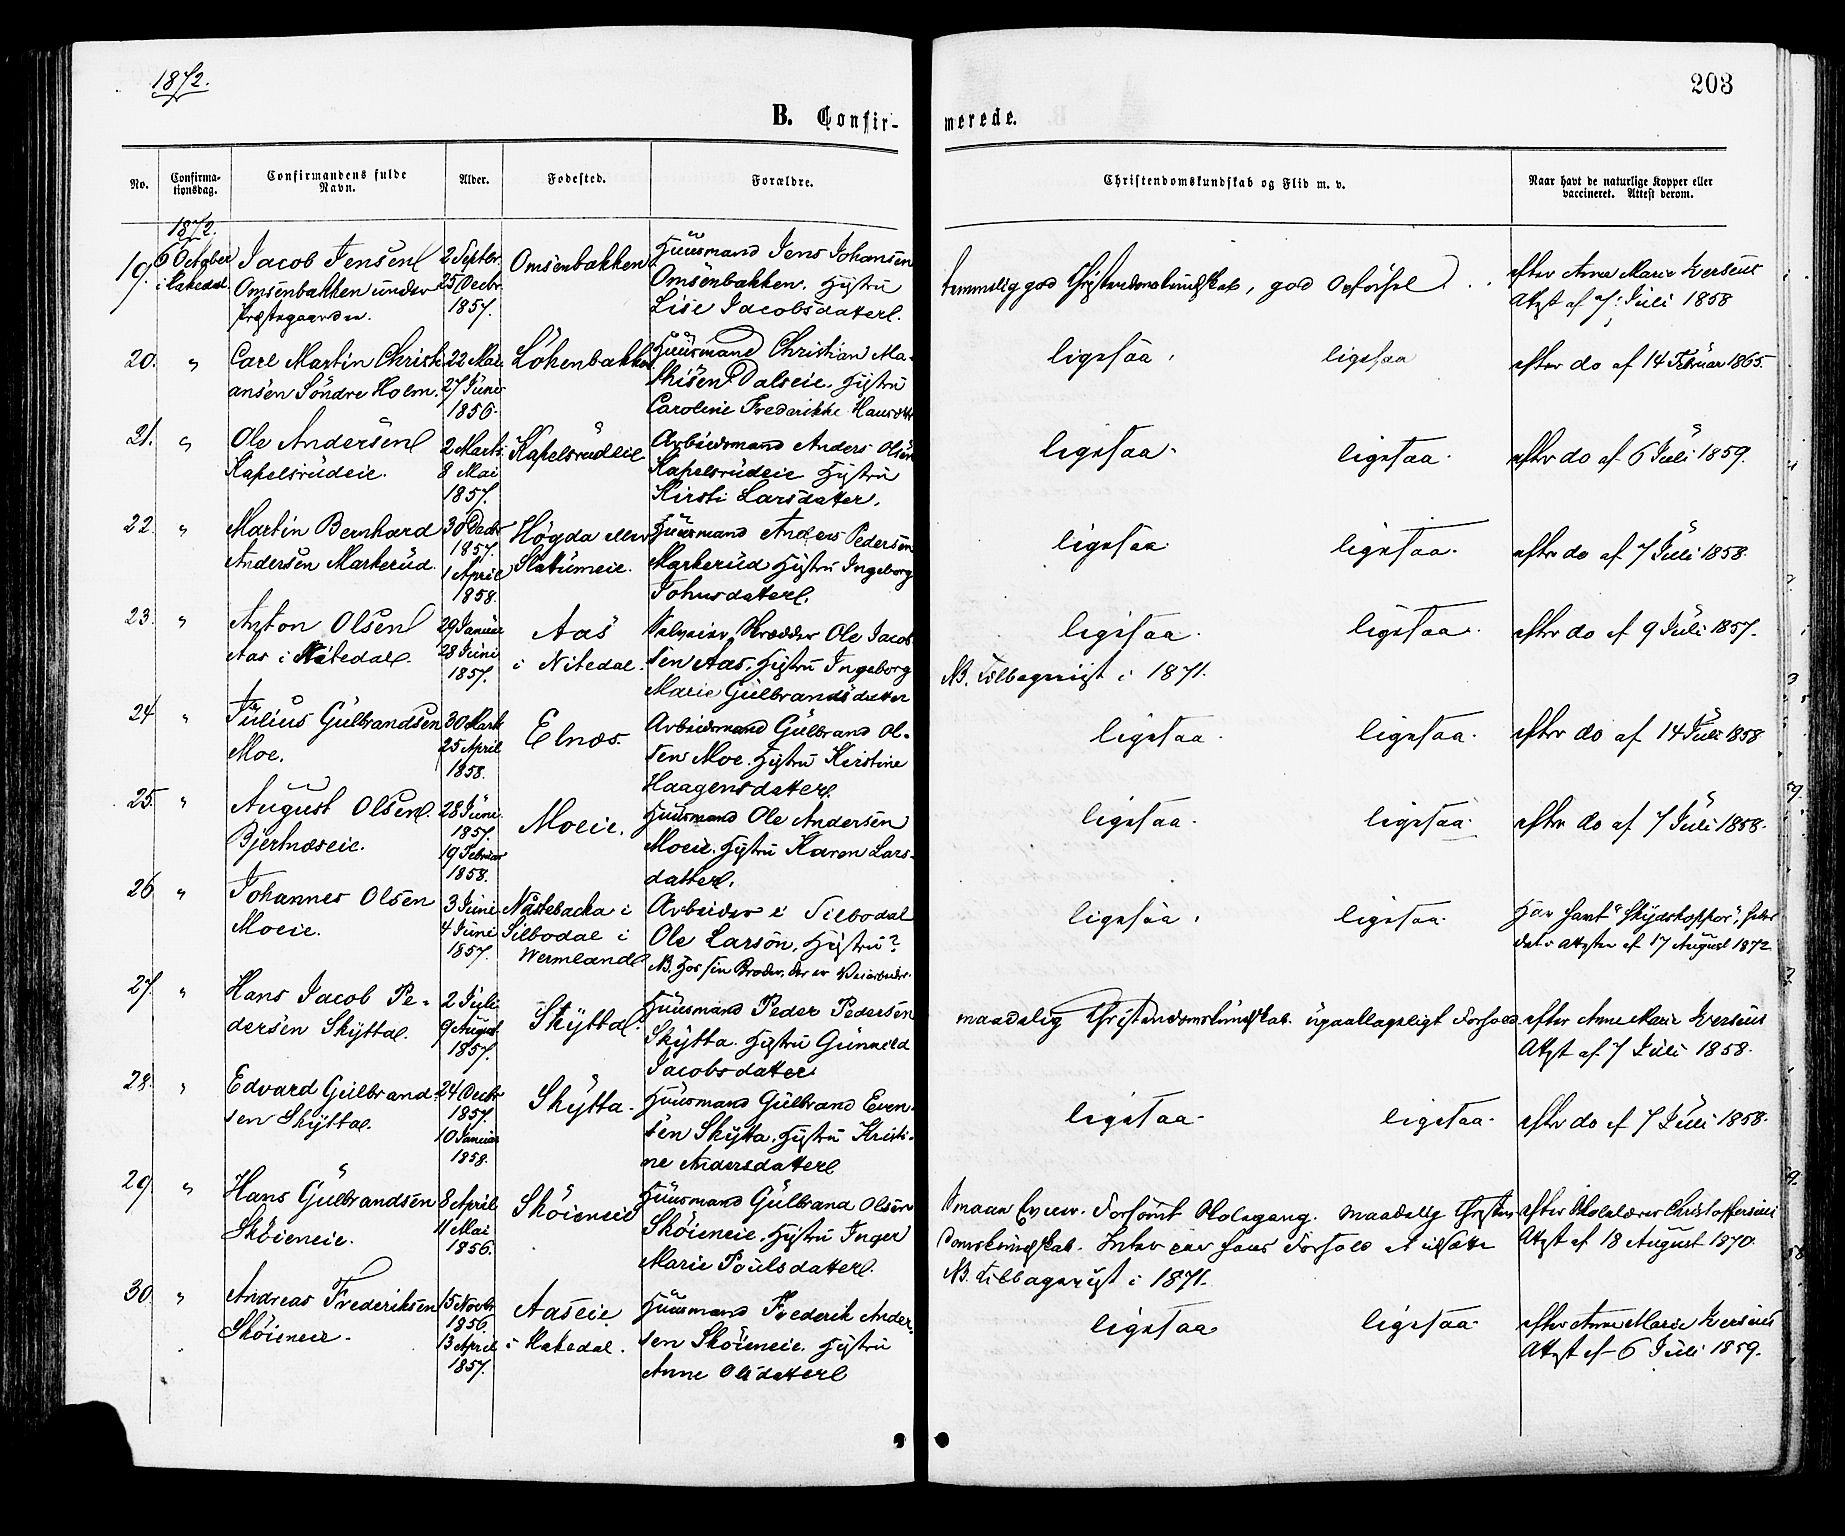 1872.
203
B. Confir-
merede.
No.
Confirma-
tionsdag.
Confirmandens fulde
Navn.
Alder.
Fødested.
Forældre.
Christendomskundskab og Flid m. v.
Naar havt de naturlige Kopper eller
vaccineret. Attest derom.
1872.
19. 6 October Jacob Jensen 2 Septbr. Omsenbakken Huusmand Jens Johansen
i Hakedal. Omsenbakken under 25 Decbr. Omsenbakken. Hustru
Præstegaarden. 1857. Lise Jacobsdatter.
temmelig god Christendomskundskab, god Opførsel. efter Anne Marie Iversens
Attest af 7 Juli 1858
20. " Carl Martin Christi- 22 Mai Løkenbakken Huusmand Christian Ma-
ansen Søndre Holm. 27 Juni thisen Dalseie. Hustru
1856. Caroline Frederikke Hansdtr
ligesaa. ligesaa efter do af 14 Februar 1865.
21. " Ole Andersen 2 Marts Kapelsrudeie Arbeidsmand Anders Olsen
Kapelsrudeie. 8 Mai Kapelsrudeie Hustru
1857. Kirsti Larsdatter.
ligesaa. ligesaa. efter do af 6 Juli 1859.
22. " Martin Bernhard 30 Decbr Høgda eller Huusmand Anders Pedersen
1857.
Andersen Markerud. 1 April Slatumeie. Markerud Hustru Ingeborg
1858. Johnsdatter.
ligesaa. ligesaa. efter do af 7 Juli 1858.
23. " Anton Olsen 29 Januar Aas Selveier, Skrædder Ole Jacob
Aas i Nitedal. 28 Juni i Nitedal. sen Aas. Hustru Ingeborg
1857. Marie Gulbrandsdatter
ligesaa. ligesaa. efter do af 9 Juli 1857.
NB. Tilbageviist i 1871.
24 " Julius Gulbrandsen 30 Marts Elnæs. Arbeidsmand Gulbrand Ol-
Moe. 25 April sen Moe. Hustru Kirstine
1858. Haagensdatter.
ligesaa. ligesaa. efter do af 14 Juli 1858
25. " August Olsen. 28 Juni Moeie. Huusmand Ole Andersen
1857.
Bjertnæseie. 19 Februar Moeie. Hustru Karen Lars-
1858. datter.
ligesaa. ligesaa. efter do af 7 Juli 1858.
26 " Johannes Olsen 3 Juni Nästebacka i Arbeider i Silbodal
Moeie. 4 Juni Silbodal i Ole Larson, Hustru?
1857. Wermland NB. Hos sin Broder, der er Veiarbeider.
ligesaa. ligesaa. Har havt "Skydskoppor", efter
attester af 17 August 1872
27. " Hans Jacob Pe- 2 Juli Skytta. Huusmand Peder Pedersen
dersen Skytta. 9 August Skytta. Hustru Gunnild
1857. Jacobsdatter
maadelig Christendomskundskab. upaaklageligt Forhold efter Anne Marie Iversens
Attest af 7 Juli 1858.
28. " Edvard Gulbrand- 24 Decbr Skytta. Huusmand Gulbrand Even-
1857.
sen Skytta. 10 Januar sen Skytta. Hustru Kristi-
1858. ne Andersdatter
ligesaa. ligesaa. efter do af 7 Juli 1858.
29 " Hans Gulbrandsen 8 April Skøieneie Huusmand Gulbrand Olsen
Skøieneie. 11 Mai Skøieneie. Hustru Inger
1856. Marie Poulsdatter.
Smaa Evner. Forsømt Skolegang. maadelig Christen- efter Skolelærer Christoffersens
domskundskab. Intet paa hans Forhold at udsætte Attest af 18 August 1870.
NB. Tilbageviist i 1871.
30. " Andreas Frederiksen 15 Novbr Aaseie Huusmand Frederik Ander-
1856.
Skøieneie. 13 April i Hakedal. sen Skøieneie. Hustru
1857. Anne Olsdatter
ligesaa ligesaa. efter Anne Marie Iversens
Attest af 6 Juli 1859.